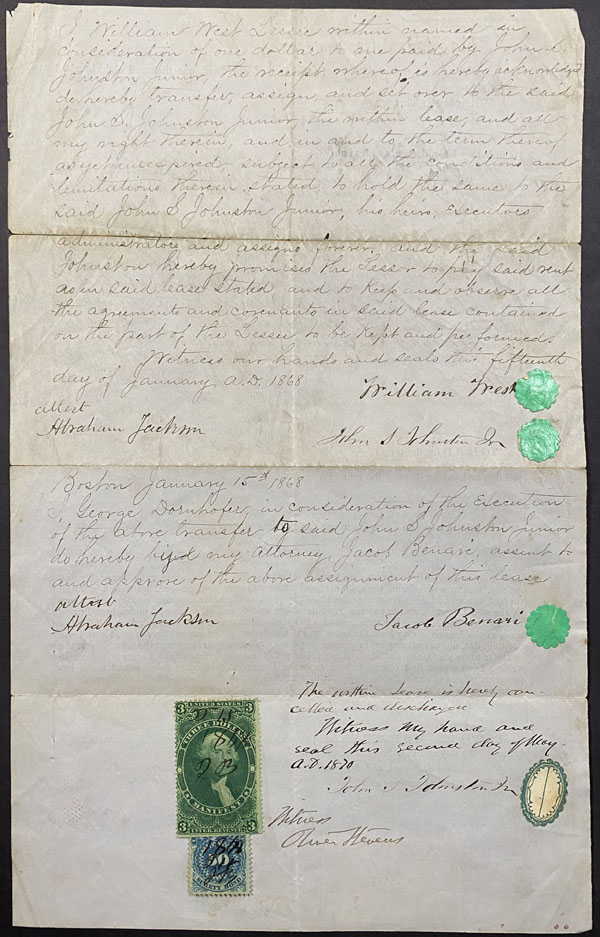 I William West Lessee within named in
consideration of one dollar to me paid by John S
Johnston junior, the receipt whereof is hereby acknowledged
do hereby transfer, assign, and set over to the said
John S. Johnston Junior, the within lease, and all
my right therein, and in and to the term thereof
as yet unexpired subject to all the conditions and
limitations therein stated, to hold the same to the
said John S Johnston Junior, his heirs, Executors
administrators and assigns forever, and the said
Johnston hereby promises the Lessor to pay said rent
as in said lease stated and to keep and observe all
the agreements and covenants in said lease contained
on the part of the Lessee to be kept and performed.
Witness our hands and seals this fifteenth
day of January A.D. 1868
William West
attest
Abraham Jackson
John S Johnston Jr
Boston January 15th 1868
I George Dornhofer, in consideration of the Execution
of the above transfer to said John S Johnston junior
do hereby by my Attorney, Jacob Benari, assent to
and approve of the above assignment of this lease
attest
Abraham Jackson
Jacob Benari
The within Lease is hereby can-
celled and discharged
Witness my hand and
seal this second day of May
A.D. 1870
John S Johnston Jr
Witness
Oliver Stevens
3 UNITED STATES 3
THREE DOLLARS
MANIFEST
3 INTER. REVENUE 3
50
SURETY BOND